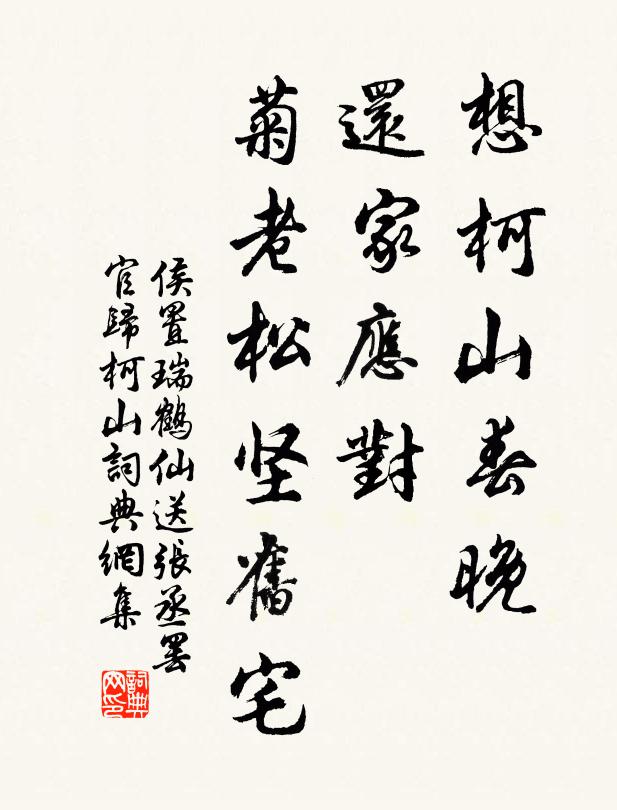 想柯山春晚
還家應對
菊老松坚舊宅
侯置瑞鶴仙送張丞罢
官歸柯山詞典網集
詞典网印